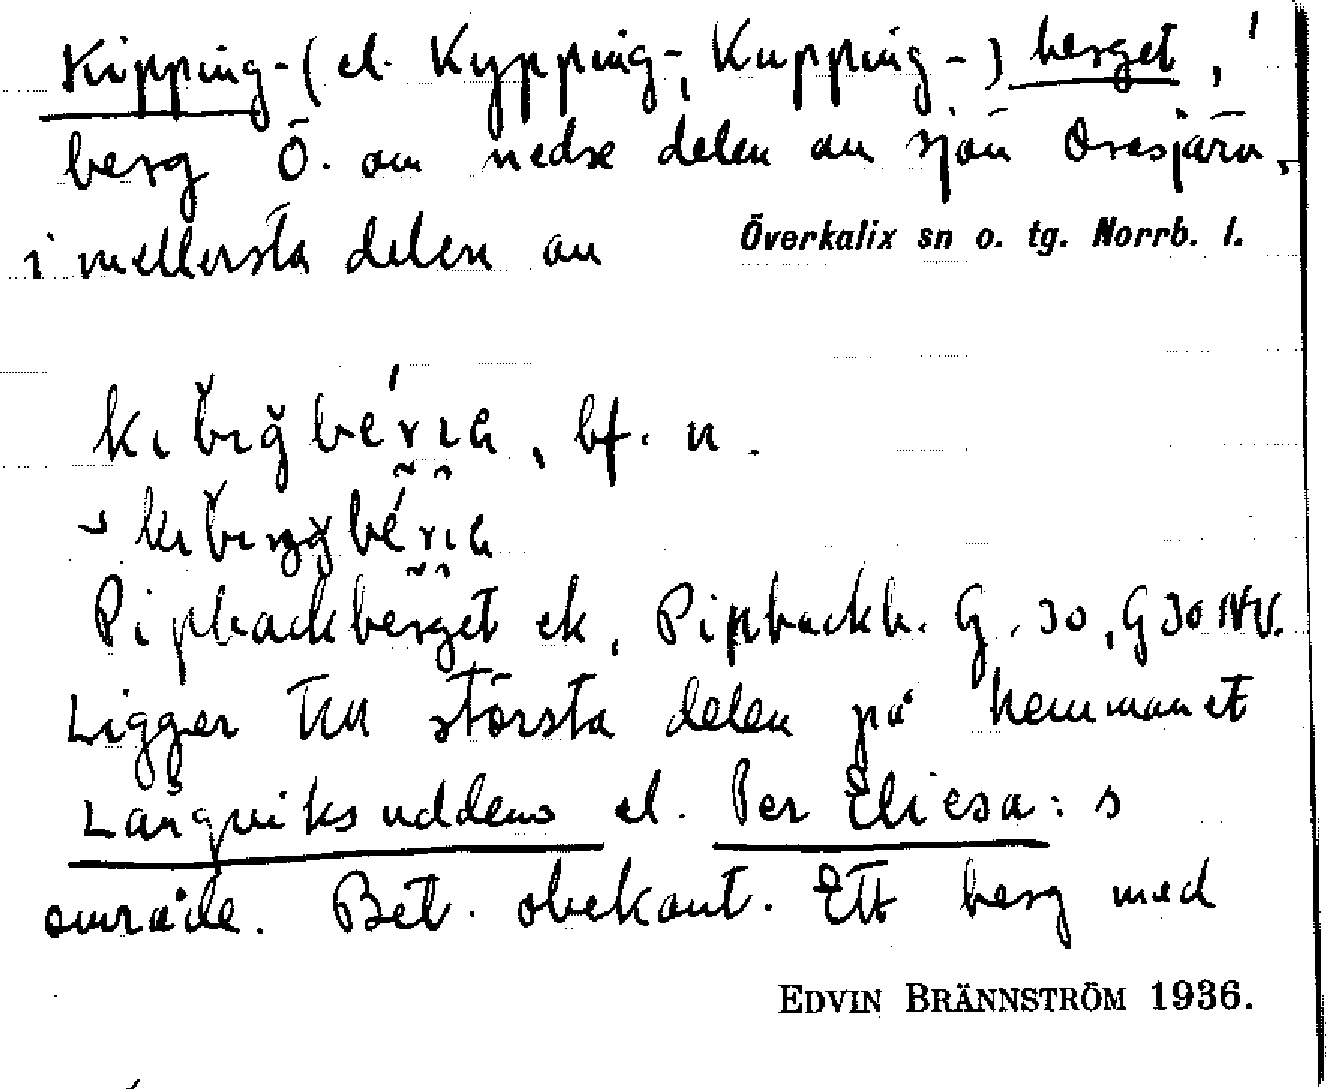 Kipping-(el. Kypping-, Kupping-)berget,
berg Ö. om nedre delen av sjön Oresjärv,
i mellersta delen av Överkalix sn o. tg. Norrb. l.
bf. n.
Pipbackberget ek, Pipbackb. G. 30, G 30 NV.
Ligger till största delen på hemmanet
Långviksuddens el. Per Eliesa:s
område. Bet. obekant. Ett berg med
EDVIN BRÄNNSTRÖM 1936.